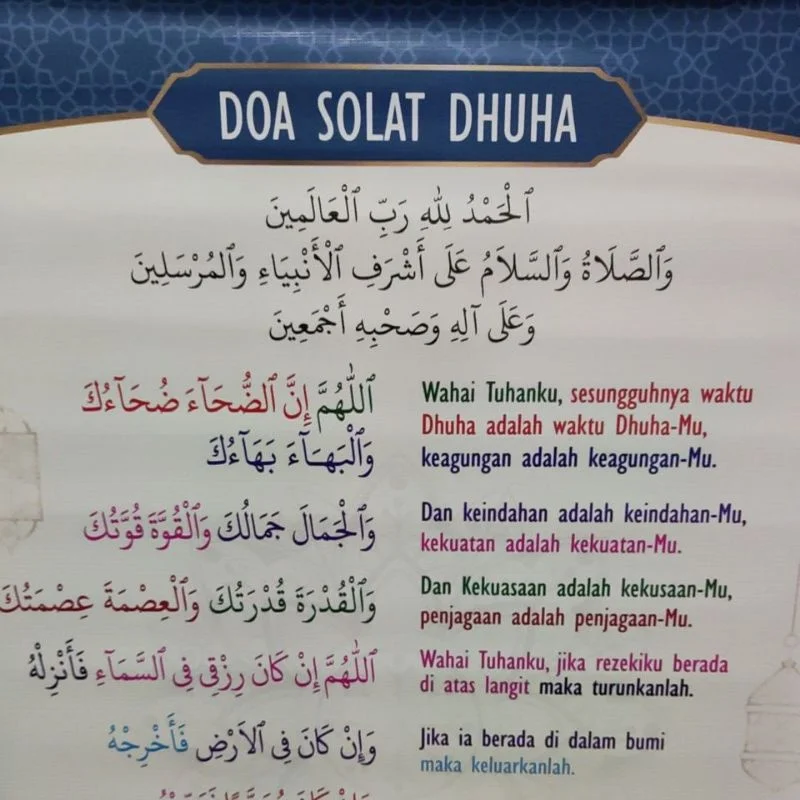 DOA SOLAT DHUHA
ٱلْحَمْدُ لِلّٰهِ رَبِّ ٱلْعَالَمِينَ
وَٱلصَّلَاةُ وَٱلسَّلَامُ عَلَى أَشْرَفِ ٱلْأَنْبِيَاءِ وَٱلْمُرْسَلِينَ
وَعَلَى آلِهِ وَصَحْبِهِ أَجْمَعِينَ
ٱللّٰهُمَّ إِنَّ ٱلضُّحَآءَ ضُحَآءُكَ
وَٱلْبَهَآءَ بَهَآءُكَ
Wahai Tuhanku, sesungguhnya waktu
Dhuha adalah waktu Dhuha-Mu,
keagungan adalah keagungan-Mu.
وَٱلْجَمَالَ جَمَالُكَ وَٱلْقُوَّةَ قُوَّتُكَ
Dan keindahan adalah keindahan-Mu,
kekuatan adalah kekuatan-Mu.
وَٱلْقُدْرَةَ قُدْرَتُكَ وَٱلْعِصْمَةَ عِصْمَتُكَ
Dan Kekuasaan adalah kekusaan-Mu,
penjagaan adalah penjagaan-Mu.
ٱللّٰهُمَّ إِنْ كَانَ رِزْقِي فِي ٱلسَّمَآءِ فَأَنْزِلْهُ
Wahai Tuhanku, jika rezekiku berada
di atas langit maka turunkanlah.
وَإِنْ كَانَ فِي ٱلاَرْضِ فَأَخْرِجْهُ
Jika ia berada di dalam bumi
maka keluarkanlah.